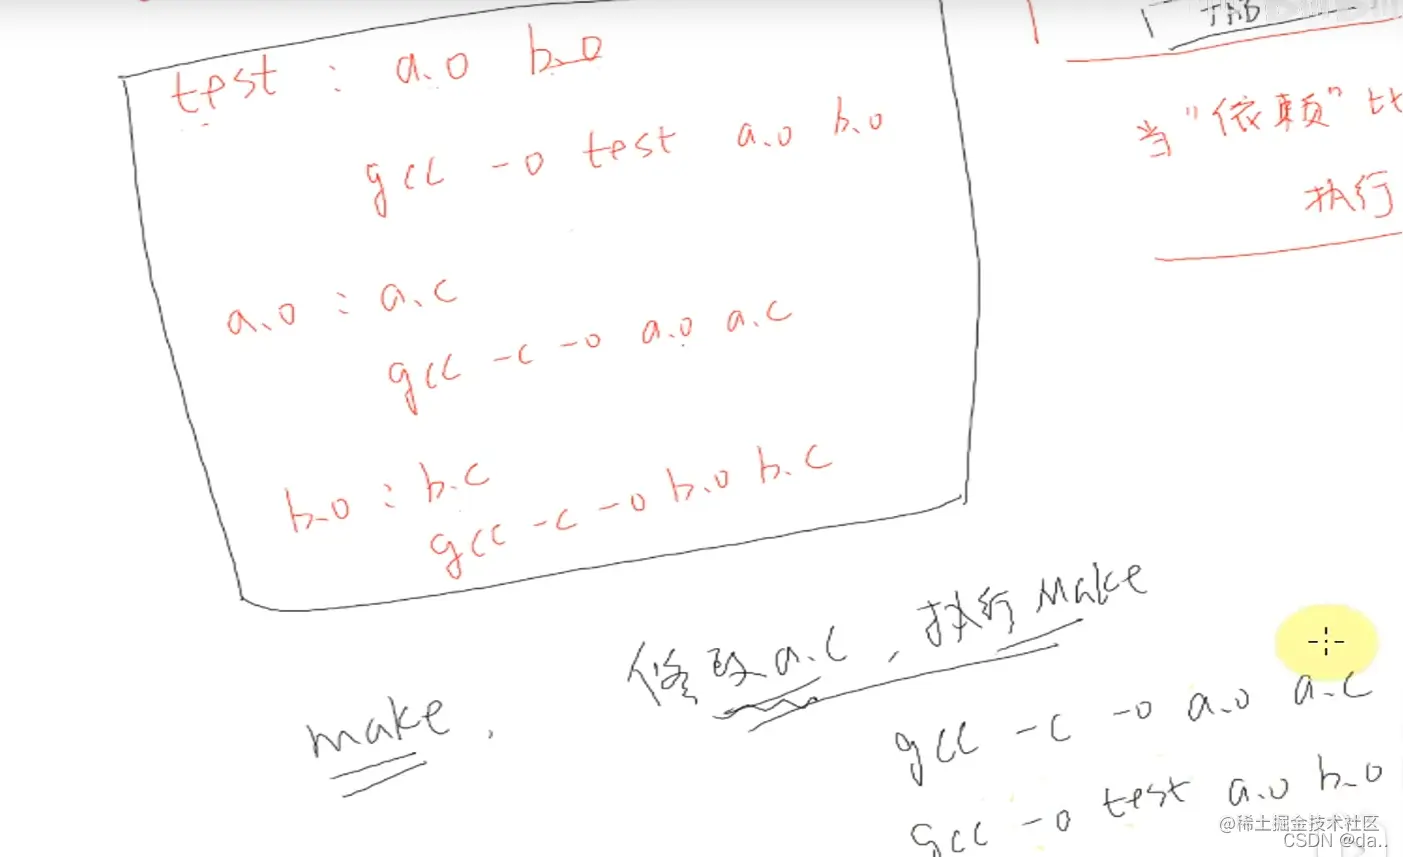 test : a.o b.o
gcc -o test a.o b.o
a.o : a.c
gcc -c -o a.o a.c
b.o : b.c
gcc -c -o b.o b.c
当"依赖"比
执行
make,
修改a.c, 执行make
gcc -c -o a.o a.c
gcc -o test a.o b.o
@稀土掘金技术社区
CSDN @da..